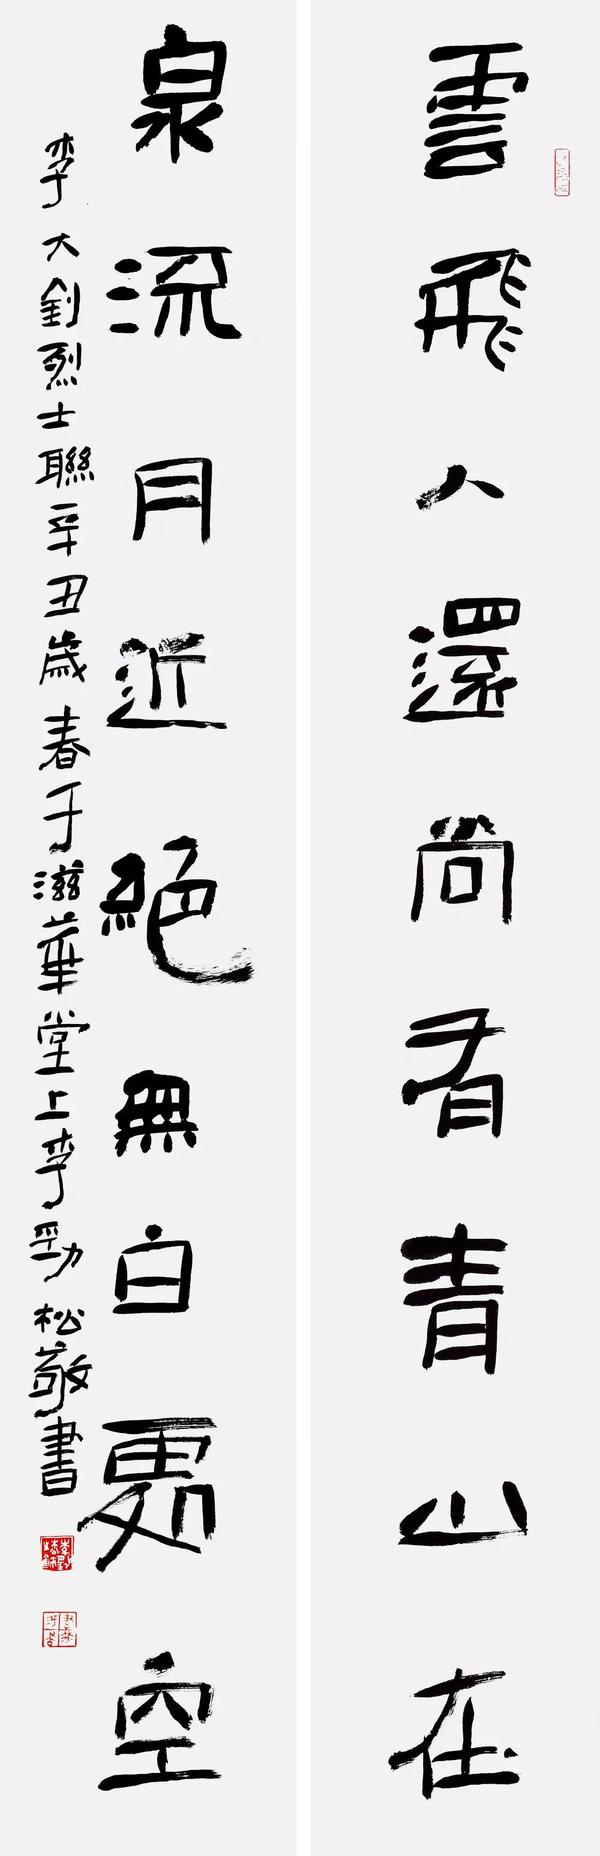 雲飛人還尚有青山在
泉流月近絕無白處空
李大釗烈士聯辛丑歲春于滋華堂上李勁松敬書